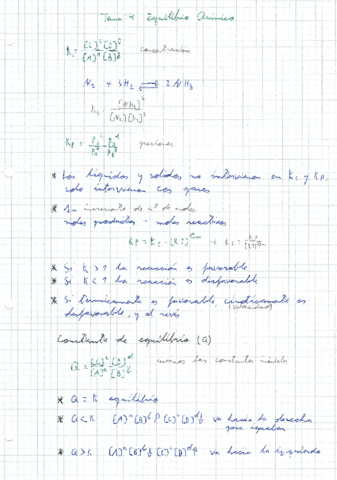 Tema 4 Equilibrio Químico
Kc = [C]^c [D]^d / [A]^a [B]^b concentración
N2 + 3H2 ⇌ 2NH3
Kc = [NH3]^2 / [N2][H2]^3
Kp = presiones
* Los líquidos y sólidos no intervienen en Kc y Kp,
solo intervienen los gases
* Δn incremento de nº de moles
moles productos - moles reactivos
Kp = Kc · (RT)^Δn → Kc = Kp / (RT)^Δn
* Si K > 1 la reacción es favorable
* Si K < 1 la reacción es desfavorable
* Si termicamente es favorable, cineticamente es
(velocidad)
desfavorable, y al revés
Constante de equilibrio (Q)
Q = [C]^c [D]^d / [A]^a [B]^b usamos las constantes iniciales
* Q = K equilibrio
* Q < K [A]^a [B]^b [C]^c [D]^d va hacia la derecha
para igualar
* Q > K [A]^a [B]^b [C]^c [D]^d va hacia la izquierda